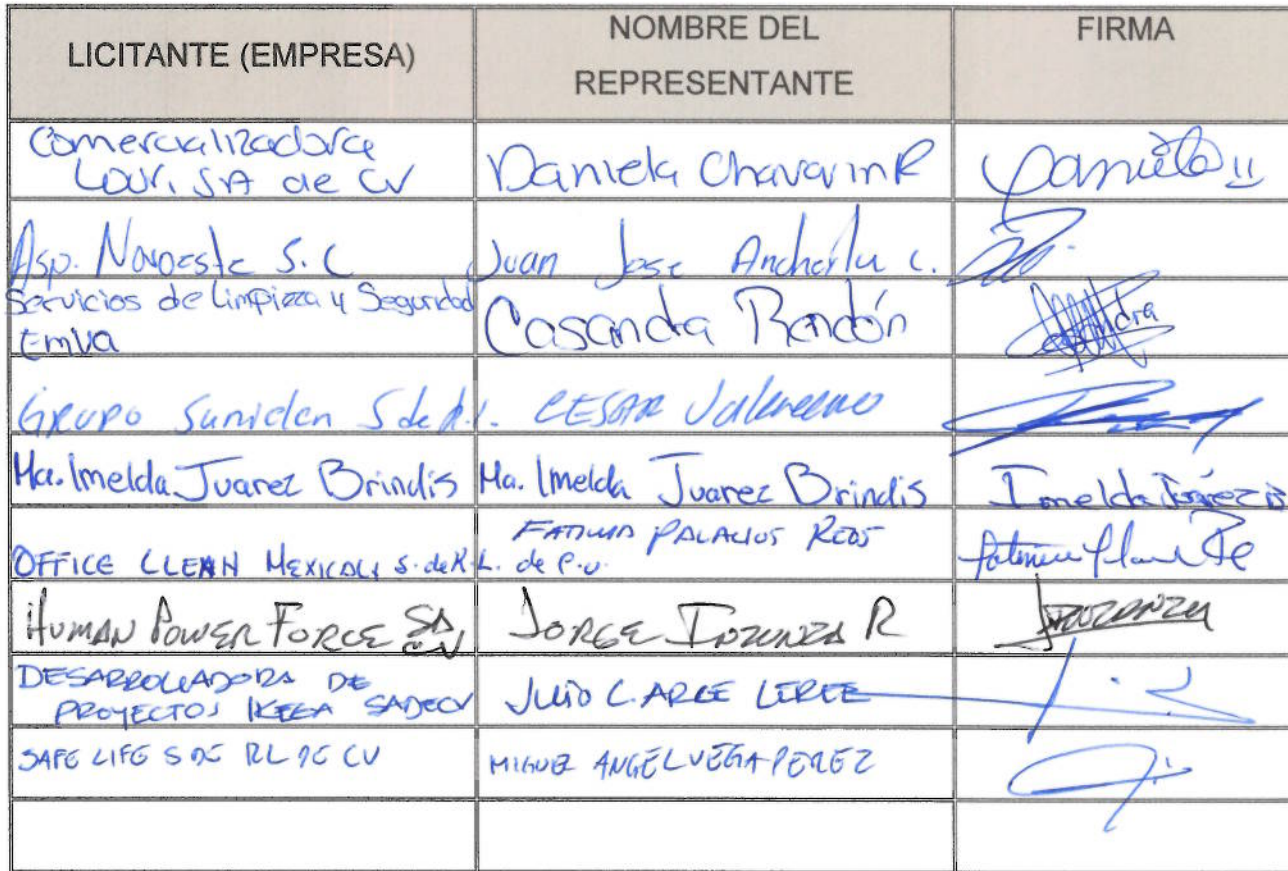 LICITANTE (EMPRESA)
NOMBRE DEL
REPRESENTANTE
FIRMA
Comercializadora
LOURI, SA de CV
Daniela Chavarin R
Daniela
Asp. Noroeste S.C
Juan Jose C.
Servicios de Limpieza y Seguridad
Emva
Casandra Rendón
GRUPO Suniclen S de R.L.
CESAR
Ma. Imelda Juarez Brindis
Ma. Imelda Juarez Brindis
Imelda Juárez B
OFFICE CLEAN MEXICALI S. de R.L. de C.V.
FATIMA PALACIOS REOS
HUMAN POWER FORCE SA CV
JORGE INZUNZA R
INZUNZA
DESARROLLADORA DE
PROYECTOS IKEGA SADECV
JULIO C. ARCE LEREE
SAFE LIFE S DE RL DE CV
MIGUEL ANGEL VEGA PEREZ